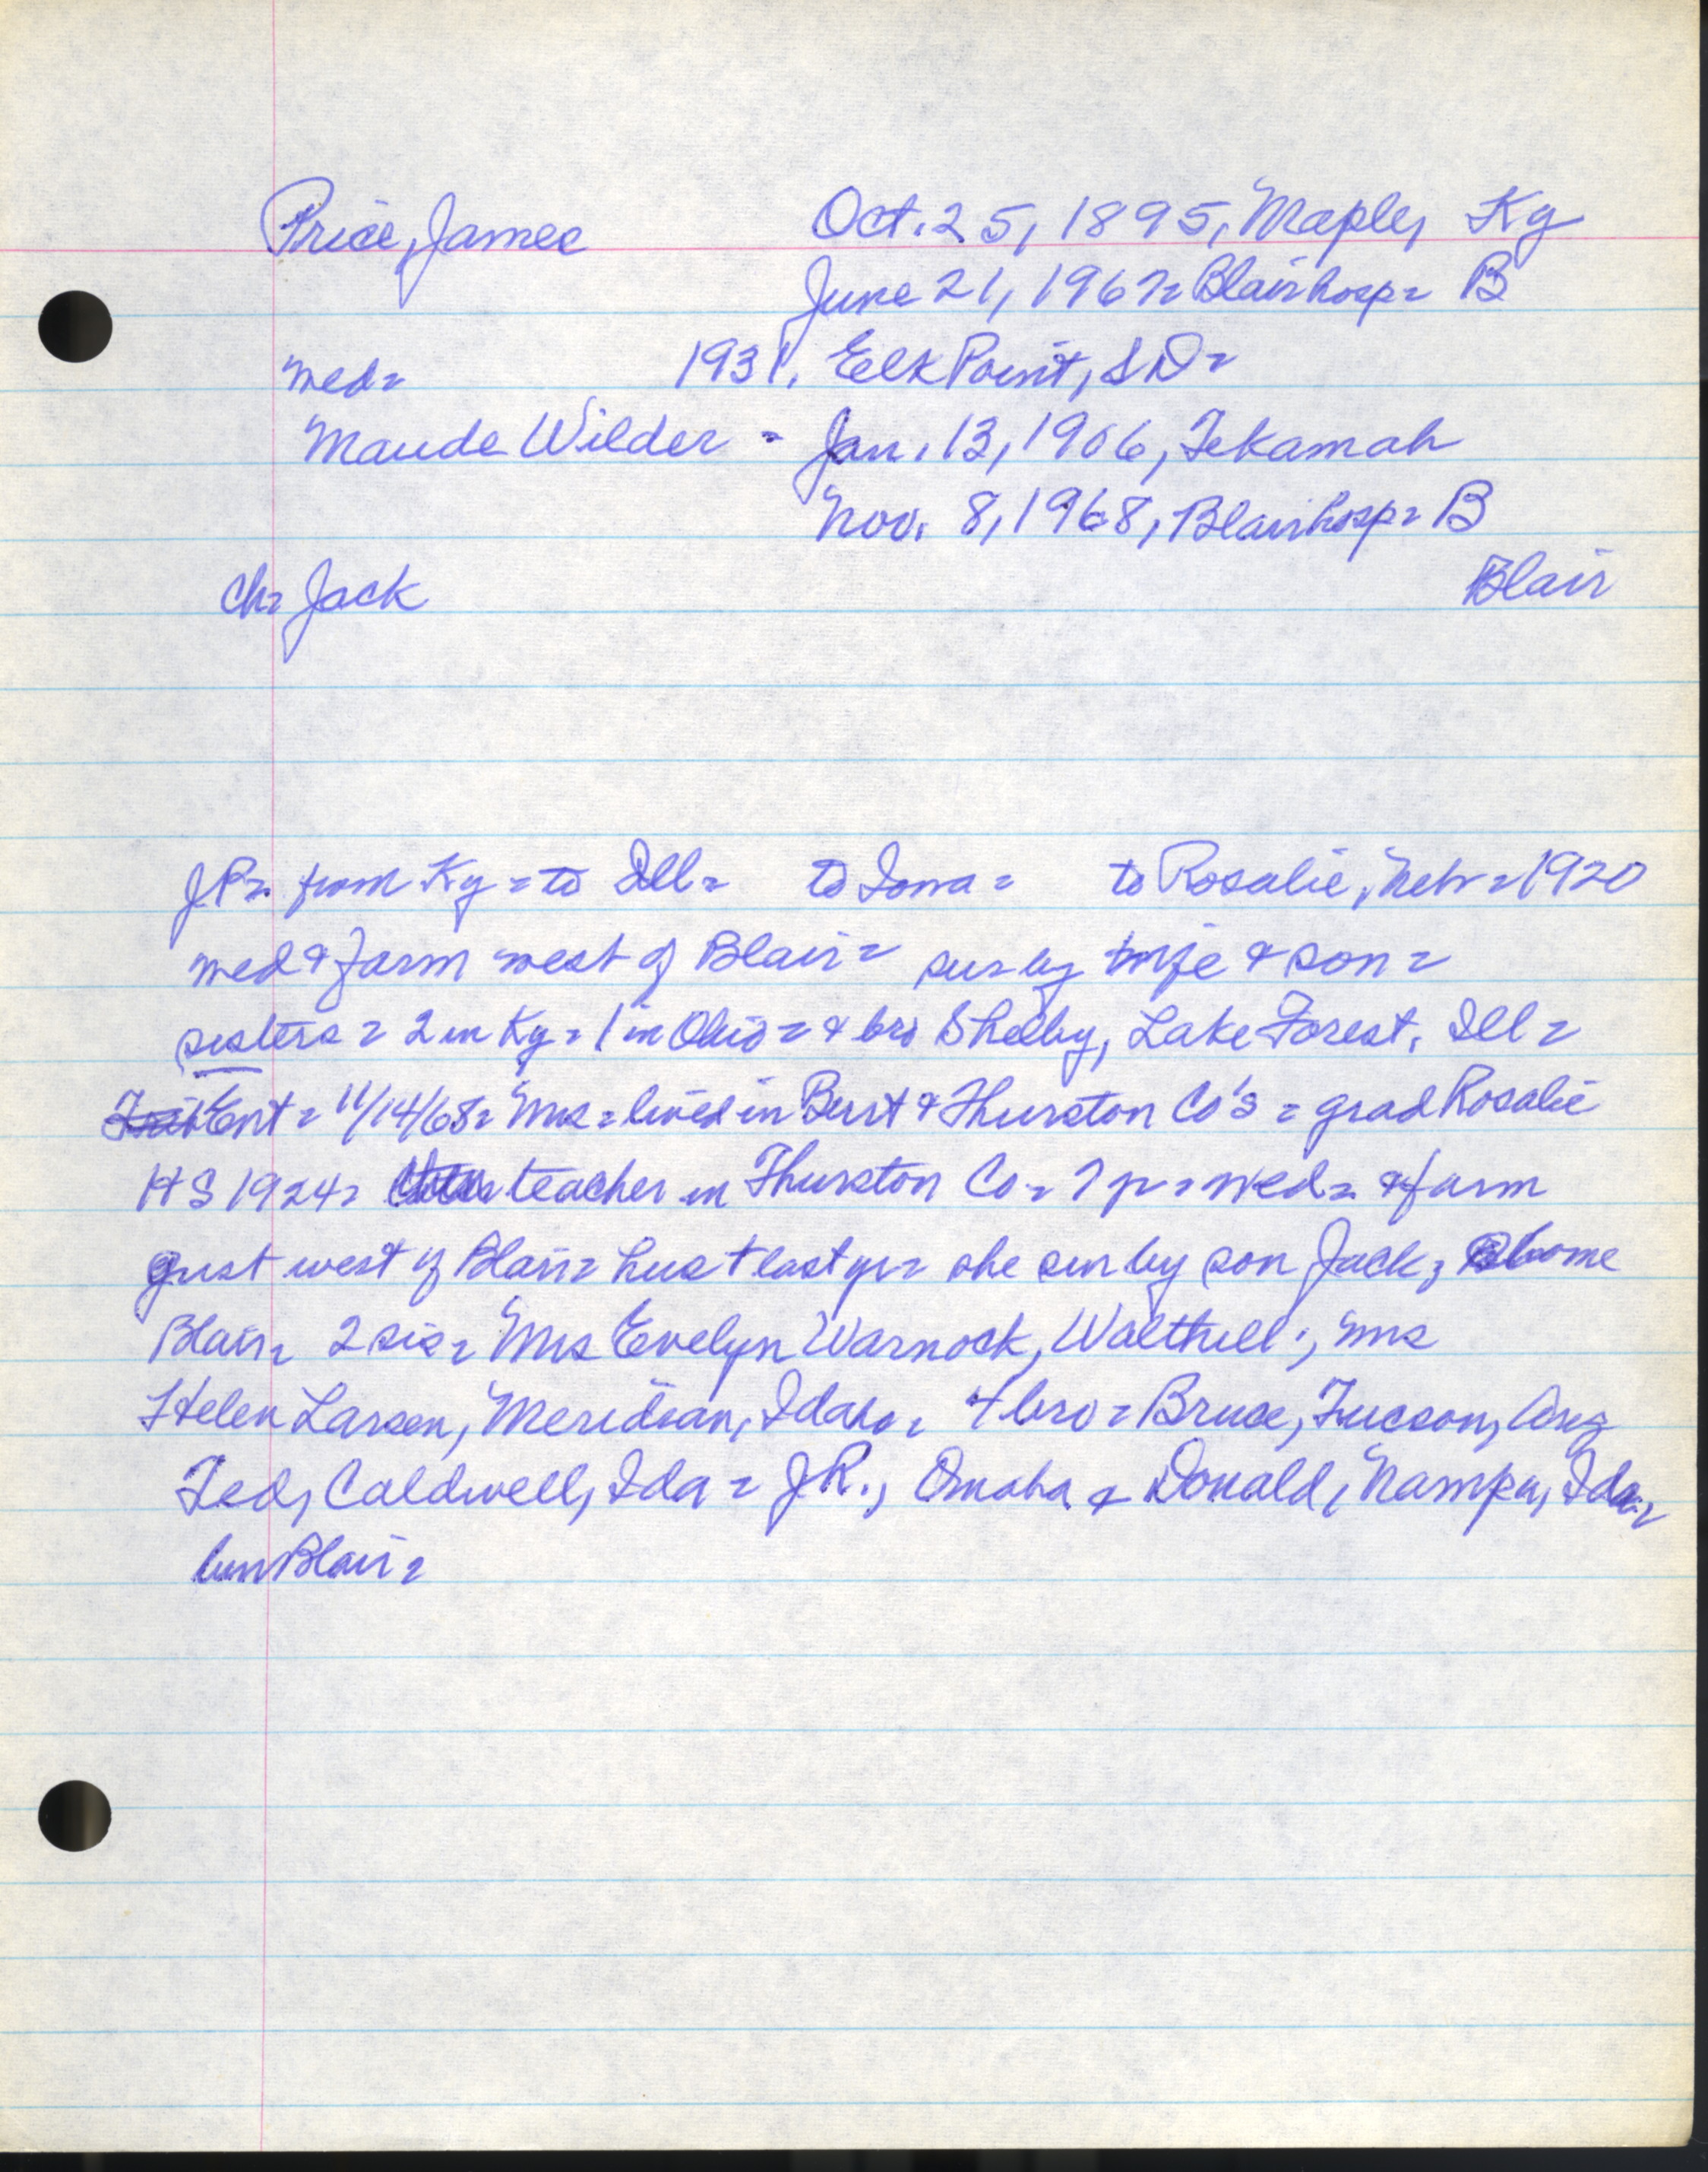 Price, James Oct. 25, 1895, Maple, Ky
June 21, 1967= Blair hosp= B
wed= 1931, Elk Point, SD=
Maude Wilder - Jan. 13, 1906, Tekamah
Nov. 8, 1968, Blair hosp= B
ch= Jack Blair
JP= from Ky = to Ill= to Iowa = to Rosalie, Nebr = 1920
wed & farm west of Blair= sur by wife & son=
sisters = 2 in Ky = 1 in Ohio = & bro Shelby, Lake Forest, Ill=
Ent = 11/14/68= Mrs = lived in Burt & Thurston Co's = grad Rosalie
HS 1924= teacher in Thurston Co = 7 yr = wed= & farm
just west of Blair= hus + last yr= she sur by son Jack, home
Blair= 2 sis= Mrs Evelyn Warnock, Walthill; Mrs
Helen Larsen, Meridian, Idaho= 4 bro = Bruce, Tucson, Ariz
Ted, Caldwell, Ida = J.R., Omaha & Donald, Nampa, Ida=
bur Blair=